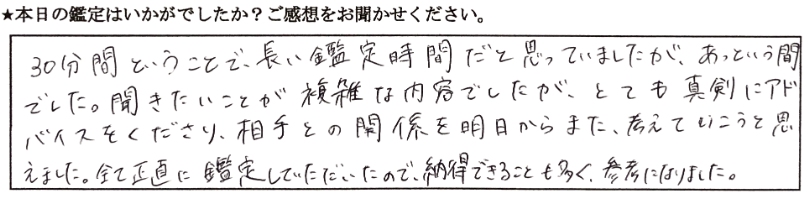 ★本日の鑑定はいかがでしたか？ご感想をお聞かせください。
30分間ということで、長い鑑定時間だと思っていましたが、あっという間
でした。聞きたいことが複雑な内容でしたが、とても真剣にアド
バイスをくださり、相手との関係を明日からまた、考えていこうと思
えました。全て正直に鑑定していただいたので、納得できることも多く、参考になりました。